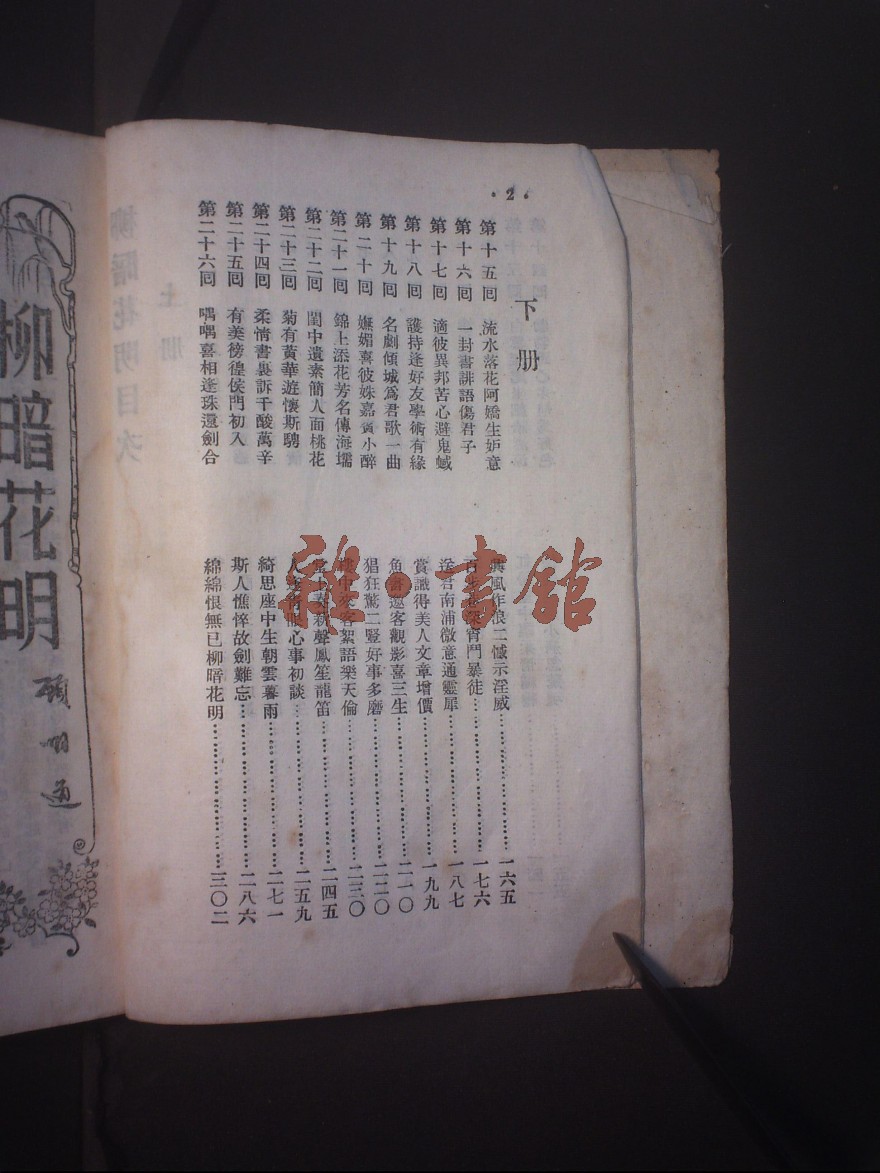 ·2·
下册
第十五囘 流水落花阿嬌生妒意 興風作浪二憾示淫威 一六五
第十六囘 一封書誹語傷君子 宵鬥暴徒 一七六
第十七囘 適彼異邦苦心避鬼蜮 送君南浦微意通靈犀 一八七
第十八囘 護持逢好友學術有緣 賞識得美人文章增價 一九九
第十九囘 名劇傾城爲君歌一曲 魚書邀客觀影喜三生 二一〇
第二十囘 嫵媚喜彼姝嘉賓小醉 猖狂驚二豎好事多磨 二二〇
第二十一囘 錦上添花芳名傳海壖 中來客絮語樂天倫 二三〇
第二十二囘 閨中遺素簡人面桃花 新聲鳳笙龍笛 二四五
第二十三囘 菊有黃華遊懷斯騁 心事初談 二五九
第二十四囘 柔情書裏訴千酸萬辛 綺思座中生朝雲暮雨 二七一
第二十五囘 有美徬徨侯門初入 斯人憔悴故劍難忘 二八六
第二十六囘 喁喁喜相逢珠還劍合 綿綿恨無已柳暗花明 三〇二
柳暗花明
顧明道
雅·書館
柳暗花明目次
上册